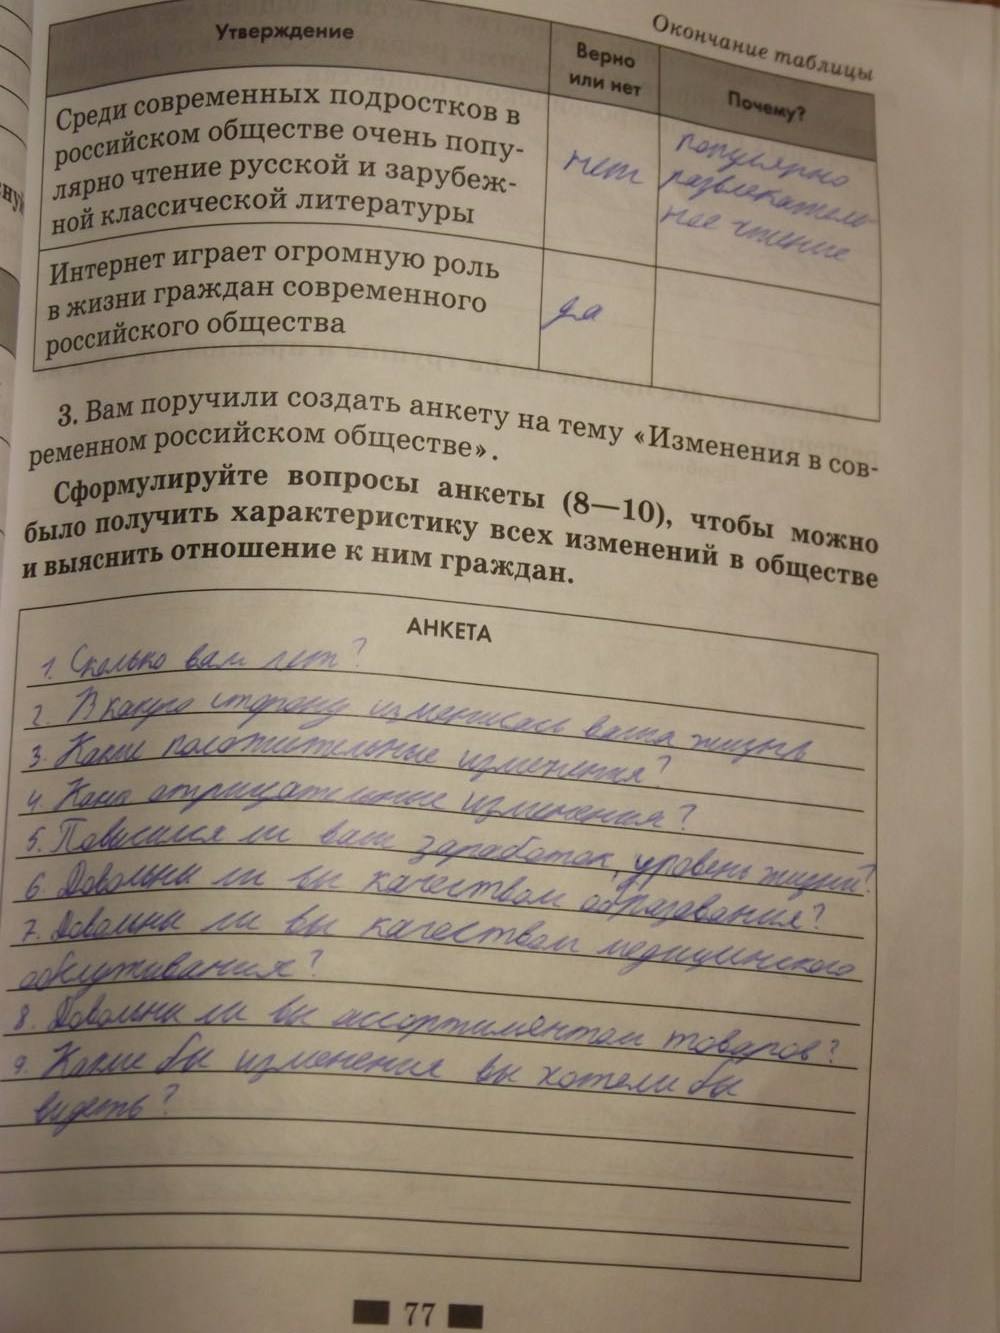 Окончание таблицы
Утверждение
Верно
или нет
Почему?
Среди современных подростков в
российском обществе очень попу-
лярно чтение русской и зарубеж-
ной классической литературы
нет
популярно
развлекатель-
ное чтение
Интернет играет огромную роль
в жизни граждан современного
российского общества
да
3. Вам поручили создать анкету на тему «Изменения в сов-
ременном российском обществе».
Сформулируйте вопросы анкеты (8—10), чтобы можно
было получить характеристику всех изменений в обществе
и выяснить отношение к ним граждан.
АНКЕТА
1. Сколько вам лет?
2. В какую сторону изменилась ваша жизнь
3. Какие положительные изменения?
4. отрицательные изменения?
5. Повысился ли ваш заработок, уровень жизни?
6. Довольны ли вы качеством образования?
7. Довольны ли вы качеством медицинского
обслуживания?
8. Довольны ли вы ассортиментом товаров?
9. Какие бы изменения вы хотели бы
видеть?
77